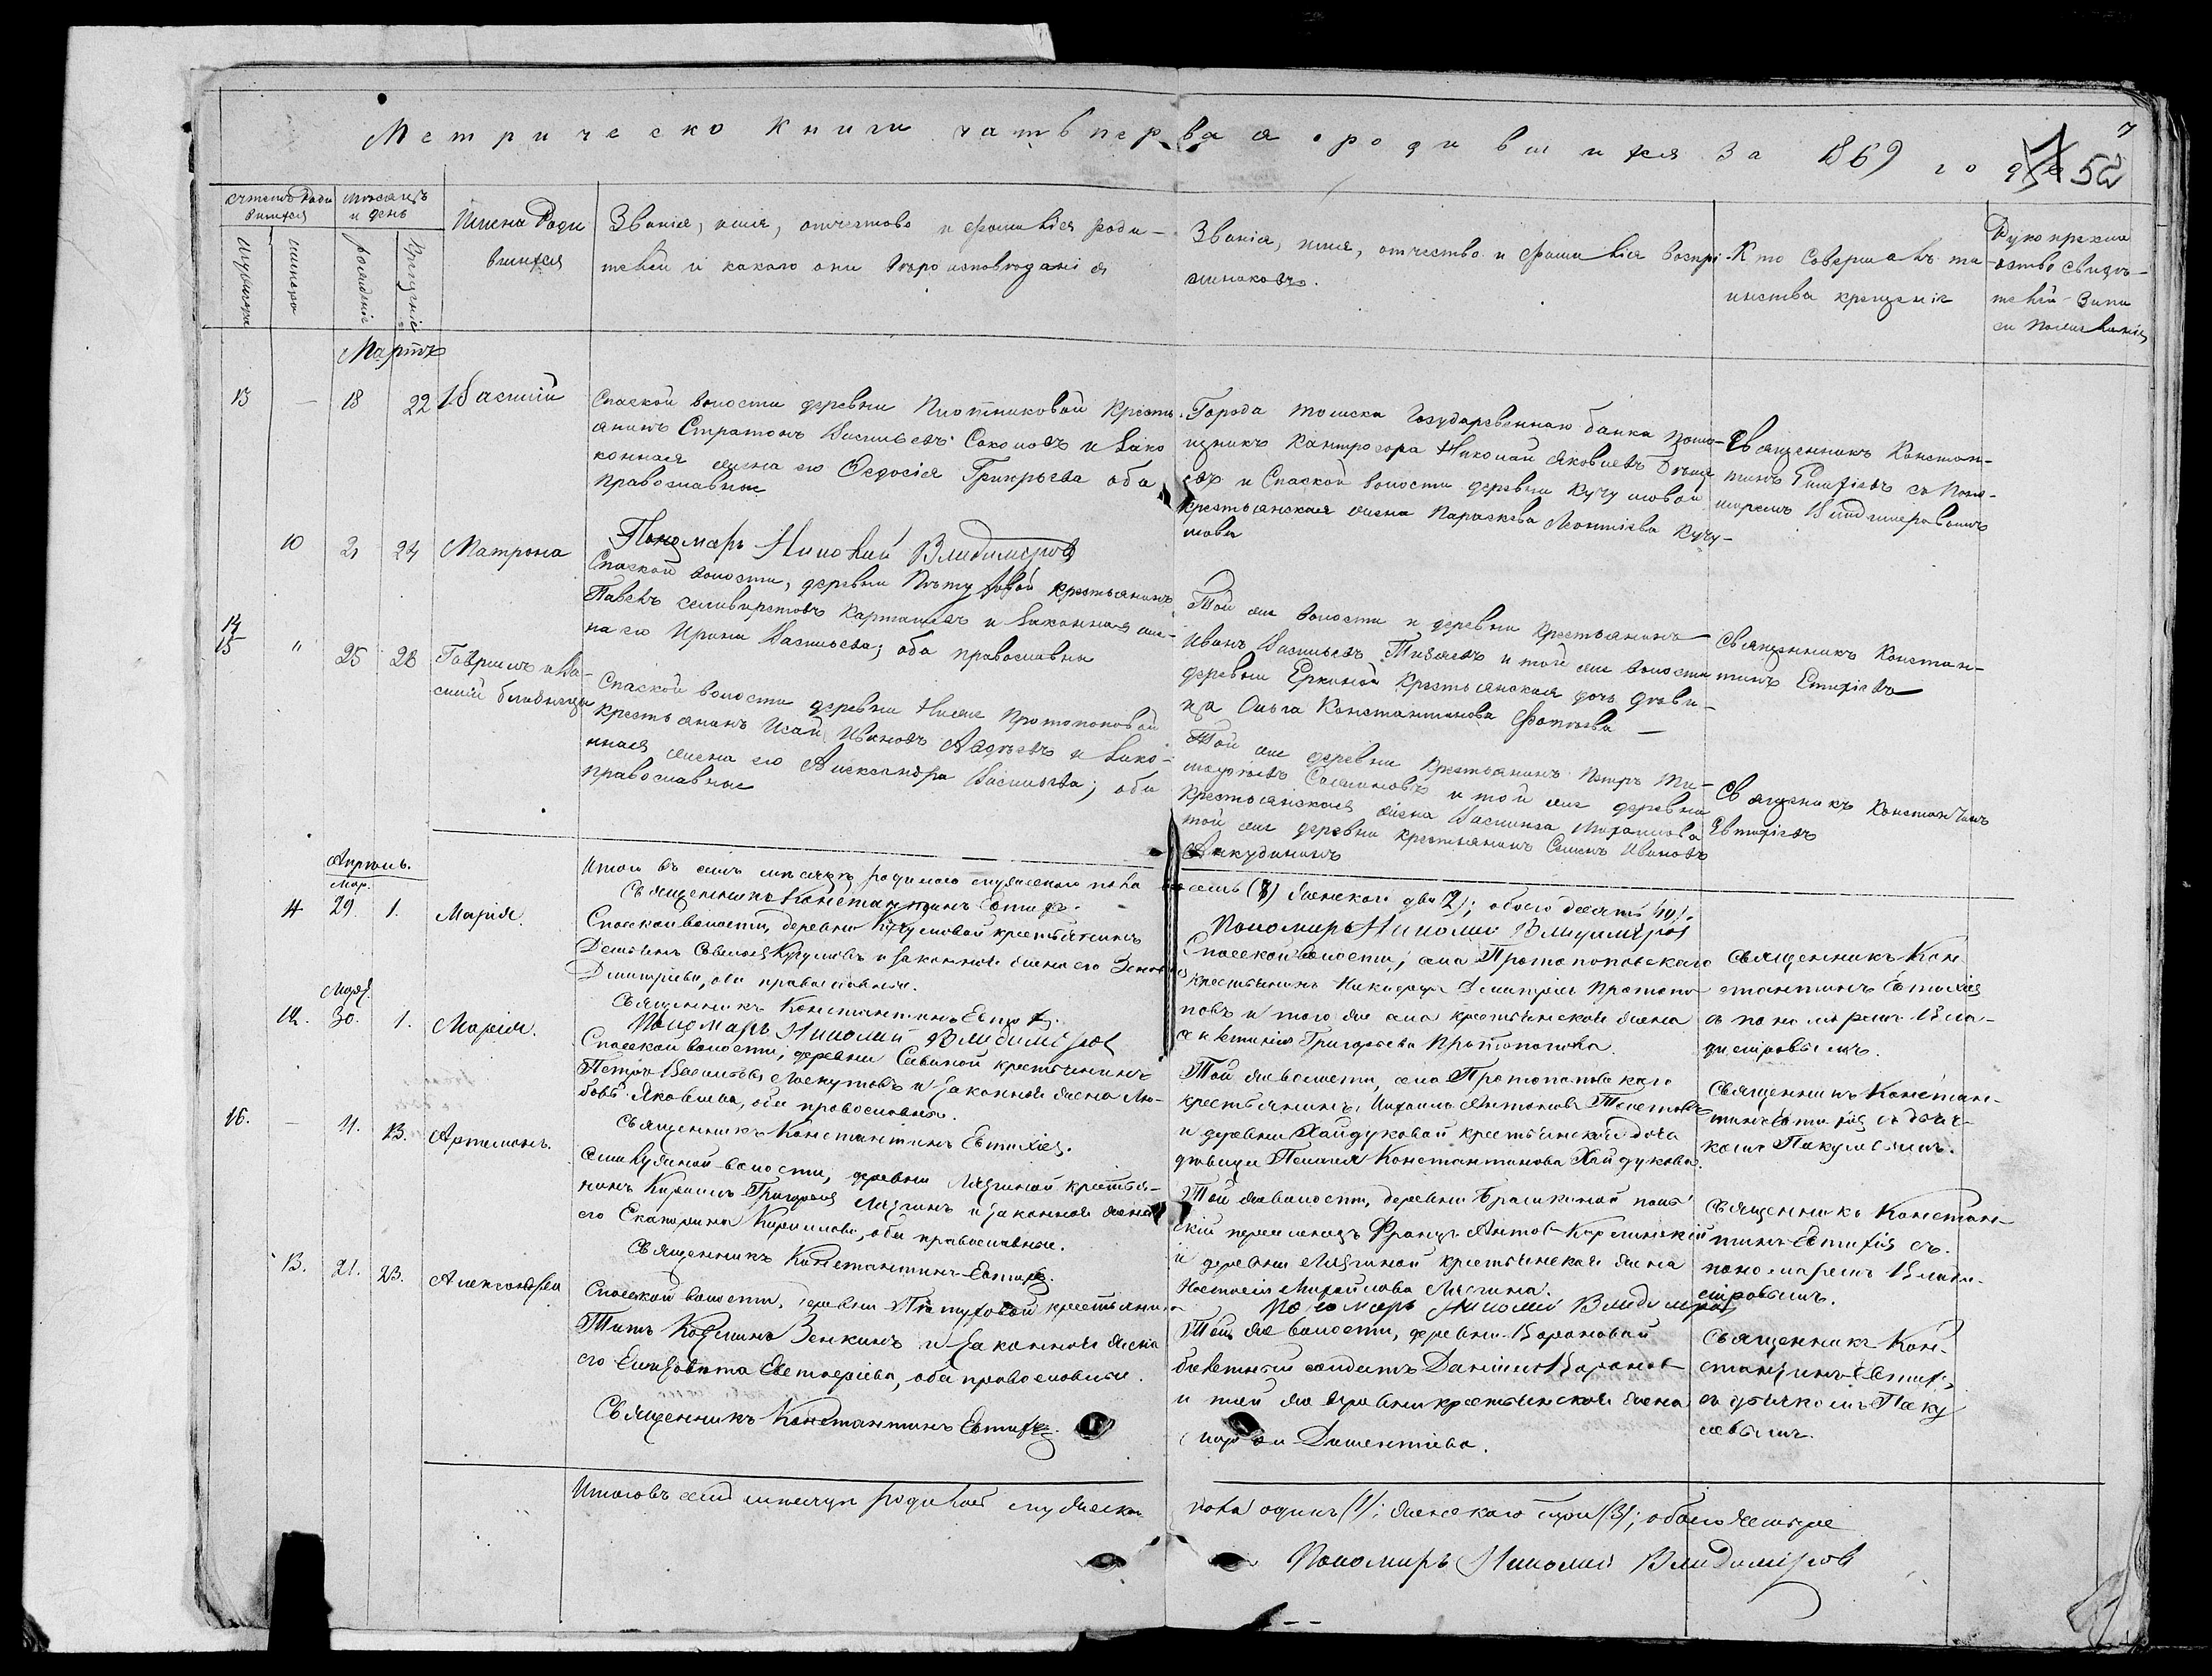 Метрическо книги часть первая о родившихся за 1869 годъ
7
52
счетъ родившихся
мужеска
женска
мѣсяцъ и день
рожденіе
крещеніе
Имена родившихся
Званія, имя, отчество и фамилія роди-
телей и какого они вѣроисповѣданія
Званія, имя, отчество и фамилія воспрі-
емниковъ.
Кто совершалъ та-
инства крещеніе
Рукоприкла-
дство свидѣ-
телей запи-
си по желанію
Мартъ
13 — 18 22 Василій
Спаской волости деревни Плотниковой Кресть-
янинъ Стратонъ Васильевъ Соколовъ и зако
конная жена его Ѳедосія Григорьева оба
православные
Города Томска Государвеннаго банка помо-
щникъ Контролера Николай Яковлевъ
и Спаской волости деревни Кучумовой
крестьянская жена Параскева Леонтіева Кучу-
мова
Священникъ Констан-
тинъ Евтихіевъ съ поно-
маремъ Владимировымъ
Пономарь Николай Владимировъ
10 21 24 Матрона
Спаской волости, деревни Пѣтуховой крестьянинъ
Павелъ Селиверстовъ Карташевъ и законная же-
на его Ирина Васильева; оба православны
Той же волости и деревни крестьянинъ
Иванъ Васильевъ и той же волости
деревни Еркиной крестьянская дочь дѣви-
ца Ольга Константинова Фатѣева —
Священникъ Констан-
тинъ Евтихіевъ
14
15 " 25 28 Гавріилъ и Ва-
силій близнецы
Спаской волости деревни Ниже Протопоповой
крестьянинъ Исай Ивановъ Авдѣевъ и зако-
нная жена его Александра Васильева; оба
православные
Той же деревни крестьянинъ Петръ Ти-
мофѣевъ и той же деревни
крестьянская жена Василиса Михаилова
той же деревни крестьянинъ Семенъ Ивановъ
Анкудинъ
Священикъ Константинъ
Евтихіевъ
Итого въ семъ мѣсяцѣ родилось мужескаго пола восемь (8) женскаго два (2); обоего десять (10).
Священникъ Константинъ Евтихіевъ.
Пономарь Николай Владиміровъ
Апрѣль.
Мар.
11 29. 1. Марія.
Спасской волости, деревни Кучумовой крестьянинъ
Демьянъ Савельевъ Кучумовъ и законная жена его
Дмитріева, оба православные.
Спасской волости; села Протопоповскаго
крестьянинъ Никифоръ Дмитріевъ Протопо-
повъ и того же села крестьянская жена
Григорьева Протопопова
Священникъ Кон-
стантинъ Евтихіев
съ пономаремъ Вла-
диміровымъ.
Священникъ Константинъ Евтихіев.
Пономарь Николай Владиміров
Март.
12. 30. 1. Марія.
Спасской волости, деревни Савиной крестьянинъ
Петръ Васильевъ Лоскутовъ и законная жена Лю-
бовь Яковлева, оба православные.
Той же волости, села Протопоповскаго
крестьянинъ, Михаилъ Антоновъ
и деревни Хайдуковой крестьянская дочь
дѣвица Пелагея Константинова Хайдукова.
Священникъ Констан-
тинъ Евтихіев съ дьяч-
комъ Пакулевымъ.
Священникъ Константинъ Евтихіев.
16. — 11. 13. Артемонъ.
волости, деревни Лязгиной крестья-
нинъ Кириллъ Григорьев Лязгинъ и законная жена
его Екатерина Кириллова, оба православные.
Той же волости, деревни Брашкиной поль-
скій переселенецъ Францъ Антоновъ
и деревни Лязгиной крестьянская жена
Настасія Михайлова Лязгина.
Священникъ Констан-
тинъ Евтихіев съ
пономаремъ Влади-
міровымъ.
Священникъ Константинъ Евтихіев.
Пономарь Николай Владиміров
13. 21. 23. Александра
Спасской волости, деревни Пѣтуховой крестьянинъ
Титъ Козминъ Зенкинъ и законная жена
его Елизавета Евстафіева, оба православные.
Той же волости, деревни Вороновой
билетный солдатъ Даніилъ Вороновъ
и той же деревни крестьянская жена
Дементіева.
Священникъ Кон-
стантинъ Евтихіев
съ дьячкомъ Паку-
левымъ.
Священникъ Константинъ Евтихіев.
Итого въ семъ мѣсяцѣ родилось мужеска пола одинъ (1); женскаго три (3); обоего четыре
Пономарь Николай Владиміров